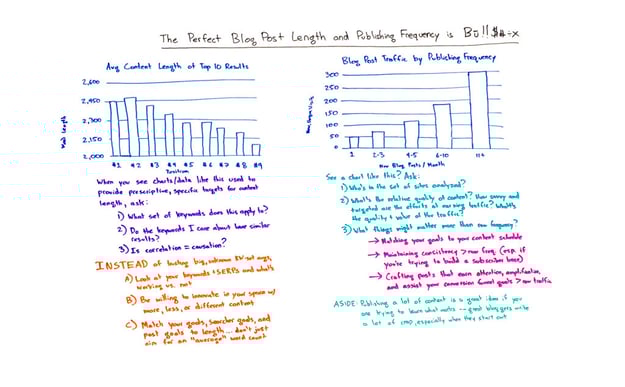 The Perfect Blog Post Length and Publishing Frequency is B
Avg Content Length of Top 10 Results
2,600
2,450
2,300
2,150
2,000
Word Length
#1 #2 #3 #4 #5 #6 #7 #8 #9
Position
When you see charts/data like this used to
provide prescriptive, specific targets for content
length, ask:
1) What set of keywords does this apply to?
2) Do the keywords I care about have similar
results?
3) Is correlation = causation?
INSTEAD of using big, unknown avgs,
A) Look at your keywords + SERPs and what's
working vs. not
B) Be willing to innovate in your space w/
more, less, or different content
C) Match your goals, searcher goals, and
post goals to length... don't just
aim for an "average" word count
Blog Post Traffic by Publishing Frequency
300
250
200
150
100
50
0
1 2-3 4-5 6-10 11+
New Blog Posts / Month
See a chart like this? Ask:
1) Who's in the set of sites analyzed?
2) What's the relative quality of content? How savvy and
targeted are the efforts at earning traffic? What's
the quality + value of the traffic?
3) What things might matter more than raw frequency?
→ Matching your goals to your content schedule
→ Maintaining consistency > raw freq (esp. if
you're trying to build a subscriber base)
→ Crafting posts that earn attention, amplification,
and assist your conversion funnel goals > raw traffic
ASIDE: Publishing a lot of content is a great idea if you
are trying to learn what works -- great bloggers write
a lot of crap, especially when they start out